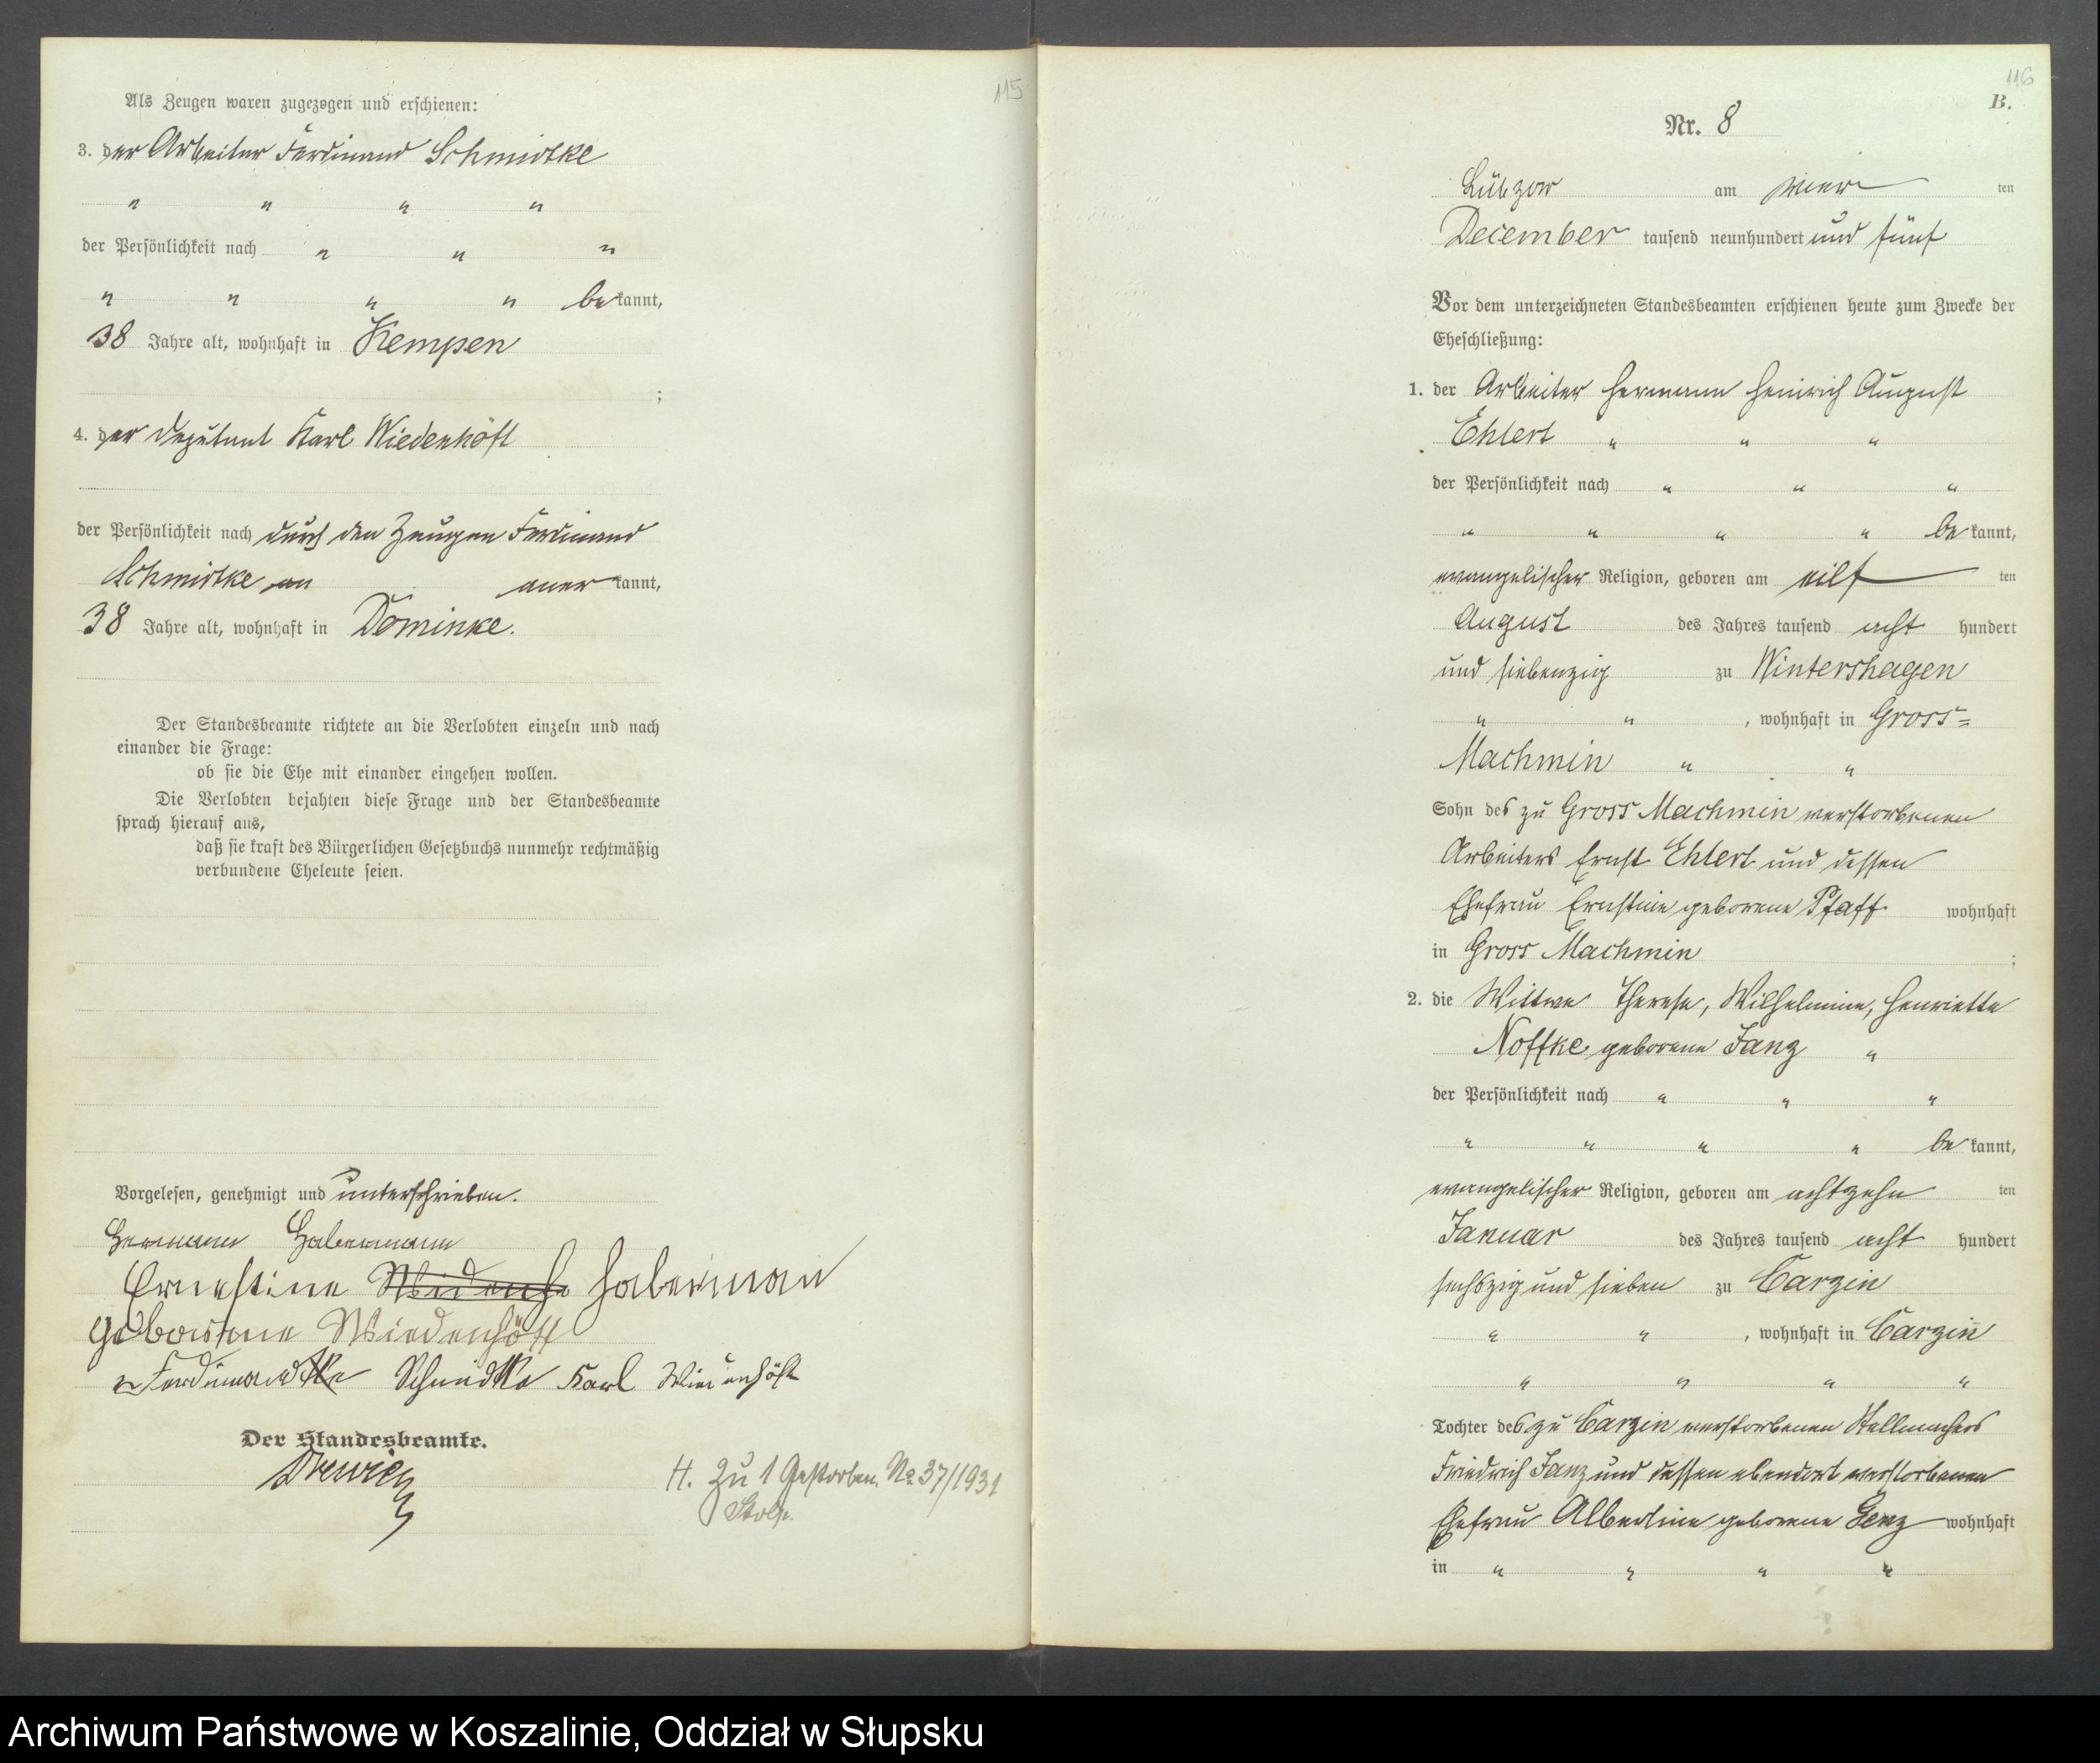 115
Als Zeugen waren zugezogen und erschienen:
3. der Arbeiter Ferdinand Schmidtke
" " " "
der Persönlichkeit nach " " "
" " " " be kannt,
38 Jahre alt, wohnhaft in Kempen
;
4. der Deputant Karl Wiedenhöft
der Persönlichkeit nach durch den Zeugen Ferdinand
Schmidtke an aner kannt,
38 Jahre alt, wohnhaft in Dominke.
Der Standesbeamte richtete an die Verlobten einzeln und nach
einander die Frage:
ob sie die Ehe mit einander eingehen wollen.
Die Verlobten bejahten diese Frage und der Standesbeamte
sprach hierauf aus,
daß sie kraft des Bürgerlichen Gesetzbuchs nunmehr rechtmäßig
verbundene Eheleute seien.
Vorgelesen, genehmigt und unterschrieben.
Hermann Habermann
Ernestine Habermann
geborene Wiedenhöft
Ferdinand Schmidtke Karl Wiedenhöft
Der Standesbeamte.
H. Zu 1 Gestorben. No 37/1931
Stolp.
116
B.
Nr. 8
Lübzow am vier ten
December tausend neunhundert und fünf
Vor dem unterzeichneten Standesbeamten erschienen heute zum Zwecke der
Eheschließung:
1. der Arbeiter Hermann Heinrich August
Ehlert " " "
der Persönlichkeit nach " " "
" " " " be kannt,
evangelischer Religion, geboren am eilf ten
August des Jahres tausend acht hundert
und siebenzig zu Wintershagen
" " , wohnhaft in Gross=
Machmin " "
Sohn des zu Gross Machmin verstorbenen
Arbeiters Ernst Ehlert und dessen
Ehefrau Ernstine geborene Pfaff wohnhaft
in Gross Machmin ;
2. die Wittwe Therese, Wilhelmine, Henriette
Noffke geborene Janz "
der Persönlichkeit nach " " "
" " " " be kannt,
evangelischer Religion, geboren am achtzehn ten
Januar des Jahres tausend acht hundert
sechszig und sieben zu Carzin
" " , wohnhaft in Carzin
" " " "
Tochter des zu Carzin verstorbenen Stellmachers
Friedrich Janz und dessen ebendort verstorbenen
Ehefrau Albertine geborene Genz wohnhaft
in " " " "
Archiwum Państwowe w Koszalinie, Oddział w Słupsku